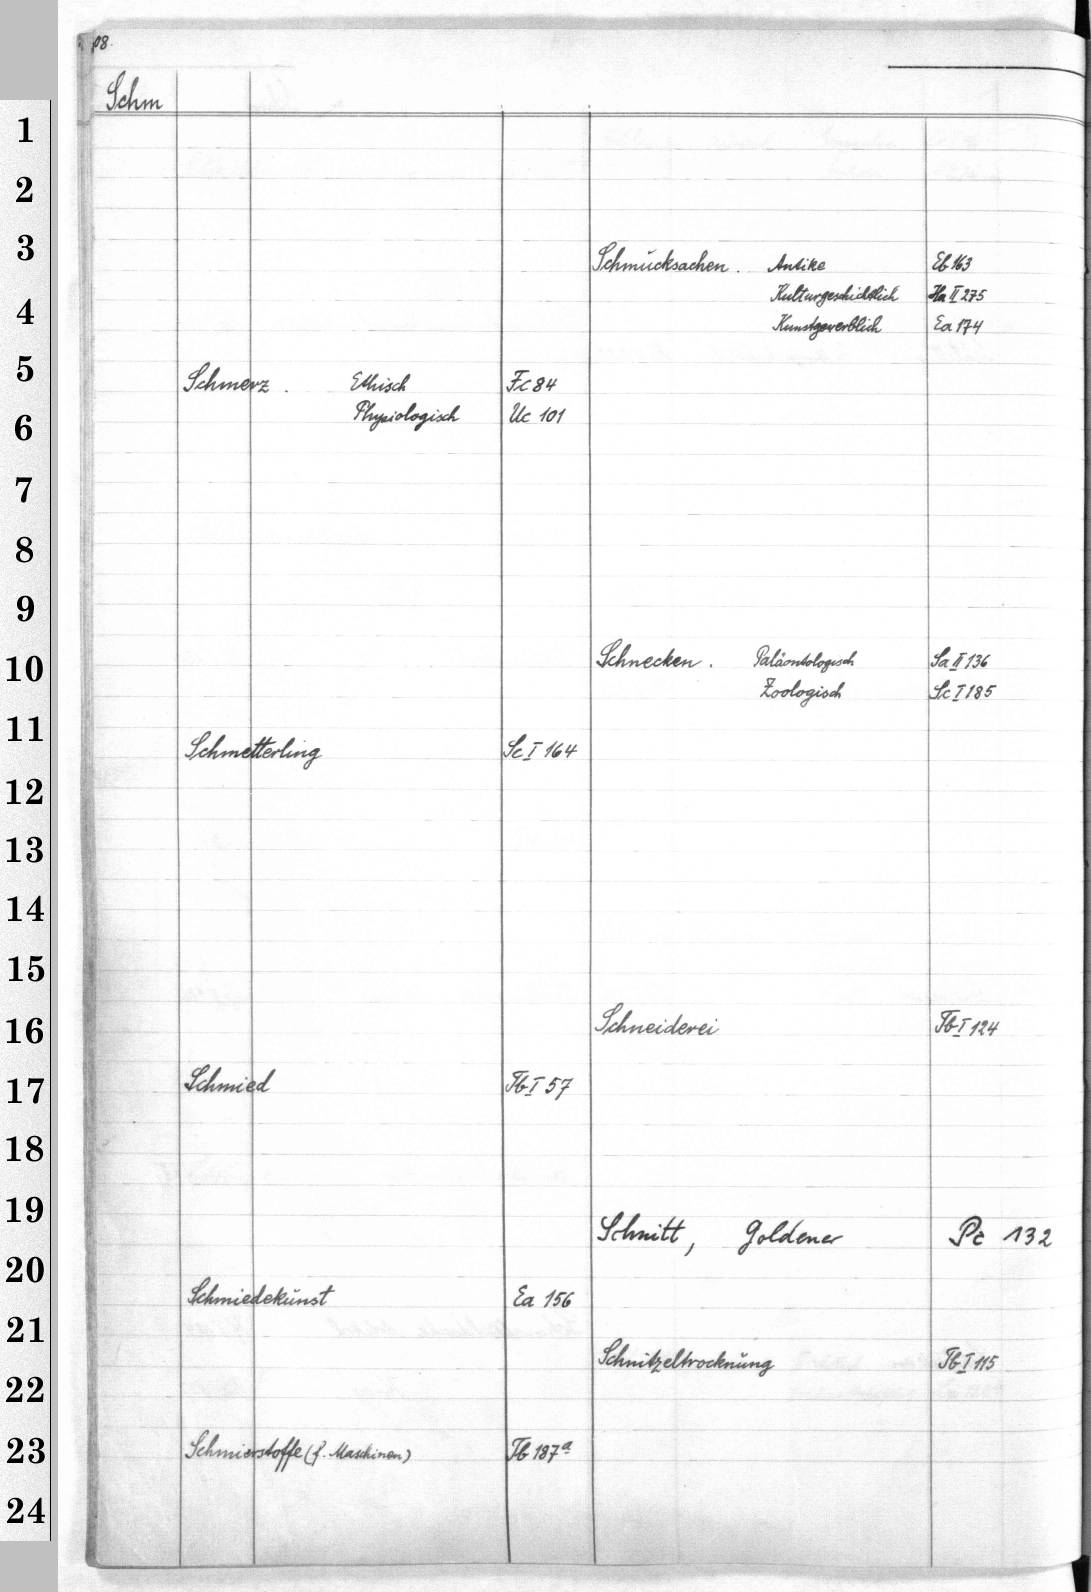 08.
Schm
1
2
3
4
5
6
7
8
9
10
11
12
13
14
15
16
17
18
19
20
21
22
23
24
Schmerz . Ethisch Fc 84
Physiologisch Uc 101
Schmetterling Sc I 164
Schmied Tb I 57
Schmiedekunst Ea 156
Schmierstoffe (f. Maschinen) Tb 187a
Schmucksachen . Antike Eb 163
Kulturgeschichtlich Ha II 275
Kunstgewerblich Ea 174
Schnecken . Paläontologisch Sa II 136
Zoologisch Sc I 185
Schneiderei Tb I 124
Schnitt, Goldener Pc 132
Schnitzeltrocknung Tb I 115